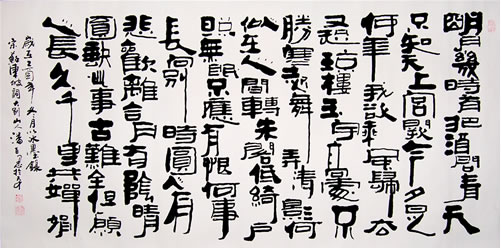 明月幾時有把酒問青天
不知天上宮闕今夕是
何年我欲乘風歸去
又恐瓊樓玉宇高處不
勝寒起舞弄清影何
似在人間轉朱閣低綺戶
照無眠不應有恨何事
長向別時圓人有
悲歡離合月有陰晴
圓缺此事古難全但願
人長久千里共嬋娟
歲在年冬月錄
宋蘇東坡詞大別山人潘